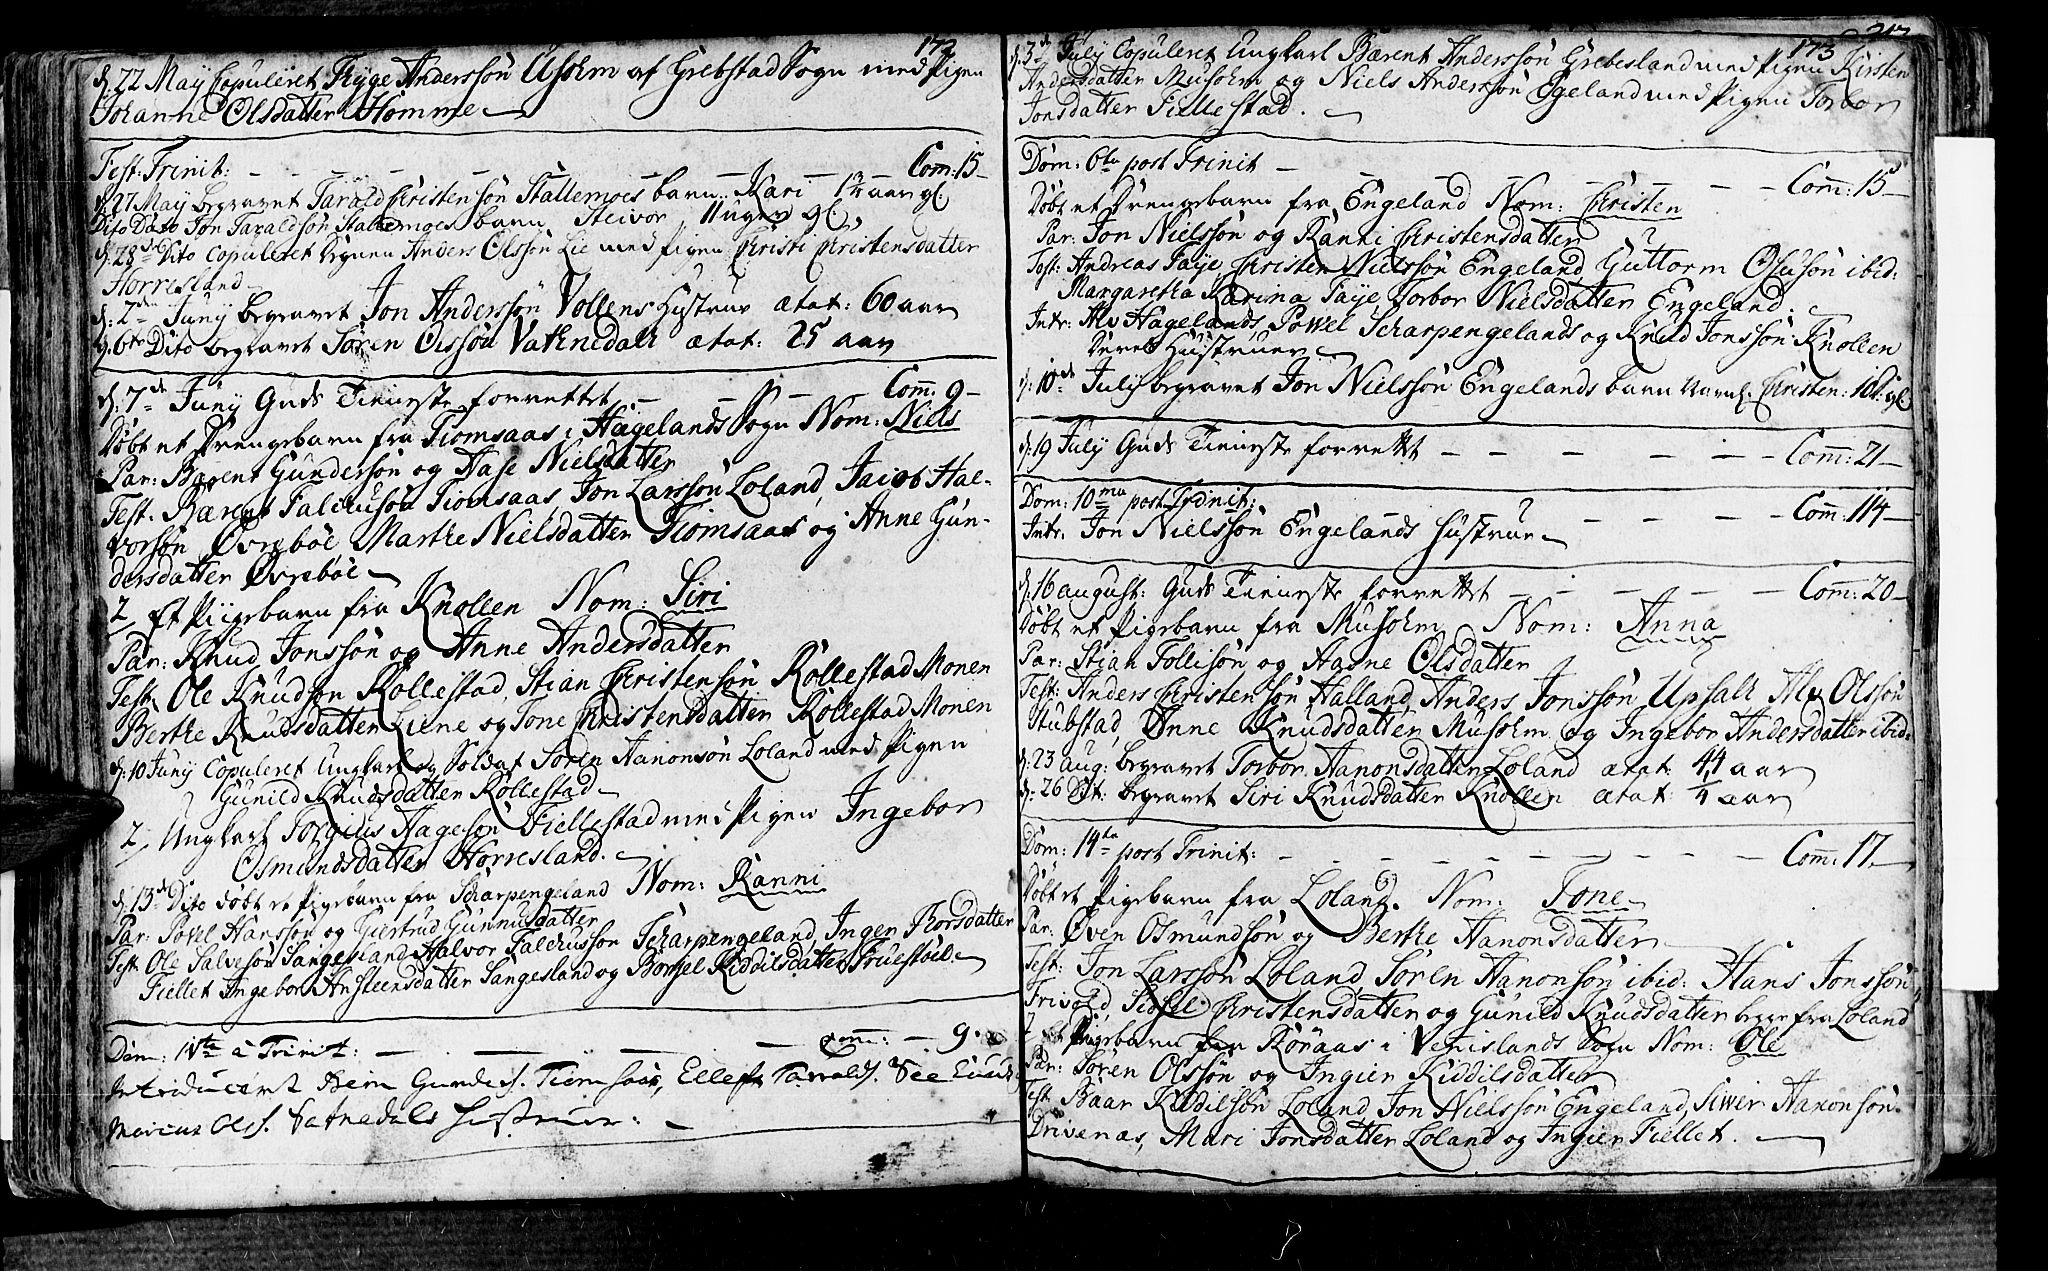 172
d. 22 May Copuleret Tryge Anderssøn Usholm af Grebstad Sogn med Pigen
Johanne Olsdatter Homme
Fest: Trinit: Com: 15
d. 27 May begravet Tarald Christensøn Stallemoes barn Kari 1 3/4 aar gl.
Dito Dato Jon Taraldsøn Stallemoes barn Steivor 11 uger gl.
d. 28de Dito Copuleret Anders Olssøn Lie med Pigen Christi Christensdatter
Horresland
d. 2den Juny begravet Jon Anderssøn Vollens Hustrue ætat: 60 aar
d. 6te Dito begravet Søren Olssøn Vatnedals ætat: 25 aar
d. 7de Juny Guds Tieneste forrettet Com: 9
Døbt et Drengebarn fra Tiomsaas i Hægelands Sogn Nom: Niels
Par: Bærent Gundersøn og Aase Nielsdatter
Test: Bærent Falchusøn Tiomsaas, Jon Larssøn Loland, Jacob Hal-
vorsøn Øvrebøe, Marthe Nielsdatter Tiomsaas og Anne Gun-
dersdatter Øvrebøe
2, Et Pigebarn fra Knollen Nom: Siri
Par: Knud Jonssøn og Anne Andersdatter
Test: Ole Knudsøn Rollestad, Stian Christensøn Rollestad Monen
Berthe Knudsdatter Liene og Tone Christensdatter Rollestad Monen
d. 10 Juny Copuleret Ungkarl og Soldat Søren Aanonsøn Loland med Pigen
Gunild Knudsdatter Rollestad
2, Ungkarl Torgius Aagesøn Fiellestad med Pigen Ingebor
Osmundsdatter Horresland.
d. 13de Dito døbt et Pigebarn fra Scharpengeland Nom: Ranni
Par: Povel Hanssøn og Giertrud Gunnusdatter
Test: Ole Salvesøn Sangesland Halvor Falchussøn Scharpengeland, Inger Thorsdatter
Fiellet Ingebor Ansteensdatter Sangesland og Borgel Kiddilsdatter Truestøel
Dom: 1ste à Trinit: Com: 9
Introduceret Beren Gunders. Tiomsaas, Ellef Tarrolds.
Marcus Ols. Vatnedals Hustruer.
173 217
d. 3de July Copuleret Ungkarl Bærent Anderssøn Grebesland med Pigen Kirsten
Andersdatter Musholm og Niels Anderssøn Egeland med Pigen Torbor
Jonsdatter Fiellestad.
Dom: 6ta post Trinit Com: 15
Døbt et Drengebarn fra Engeland Nom: Christen
Par: Jon Nielssøn og Ranni Christensdatter
Test: Andreas Faye, Christen Nielssøn Engeland, Guttorm Osusøn ibid:
Margaretha Karina Faye, Torbor Nielsdatter Engeland.
Intr: Alv Hagelands, Powel Scharpengelands og Knud Jonssøn Knollen
Deres Hustruer
d. 10de July begravet Jon Nielssøn Engelands barn Navnl. Christen: 10 d: gl
d. 19 July Guds Tieneste forrettet Com: 21
Dom: 10ma post Trinit: Com: 114
Intr: Jon Nielssøn Engelands Hustrue
d. 16 august: Guds Tieneste forrettet Com: 20
Døbt et Pigebarn fra Musholm Nom: Anna
Par: Stian Tollisøn og Aasne Olsdatter
Test: Anders Christensøn Halland, Anders Jonssøn Upsall, Alv Olssøn
Stubstad, Anne Knudsdatter Musholm og Ingebor Andersdatter ibid:
d. 23 aug: begravet Torbor Aanonsdatter Loland ætat: 44 aar
d. 26 Dit: begravet Siri Knudsdatter Knollen ætat: 1/4 aar
Dom: 14ta post Trinit: Com: 17
Døbt et Pigebarn fra Loland. Nom: Tone
Par: Øven Osmundsøn og Berthe Aanonsdatter
Test: Jon Larssøn Loland, Søren Aanonsøn ibid: Hans Jonssøn
Trivold, Sissel Christensdatter og Gunild Knudsdatter begge fra Loland
2, et Pigebarn fra Røraas i Vennislands Sogn Nom: Ole
Par: Søren Olssøn og Ingier Kiddilsdatter
Test: Baar Kiddilsøn Loland, Jon Nielssøn Engeland, Siwer Aanonsøn
Drivenæs, Mari Jonsdatter Loland og Ingier Fiellet.